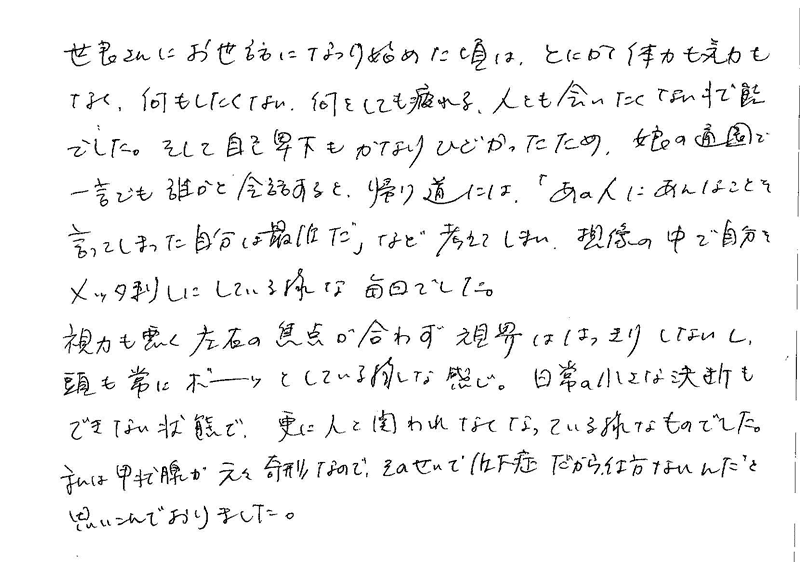 世良さんにお世話になり始めた頃は、とにかく体力も気力も
なく、何もしたくない、何をしても疲れる、人とも会いたくない状態
でした。そして自己卑下もかなりひどかったため、娘の通園で
一言でも誰かと会話すると、帰り道には、「あの人にあんなことを
言ってしまった自分は最低だ」など考えてしまい、想像の中で自分を
メッタ刺しにしている様な毎日でした。
視力も悪く左右の焦点が合わず視界ははっきりしないし、
頭も常にボーーッとしている様な感じ。日常の小さな決断も
できない状態で、更に人と関われなくなっている様なものでした。
私は甲状腺が元々奇形なので、そのせいで低下症だから仕方ないんだと
思いこんでおりました。